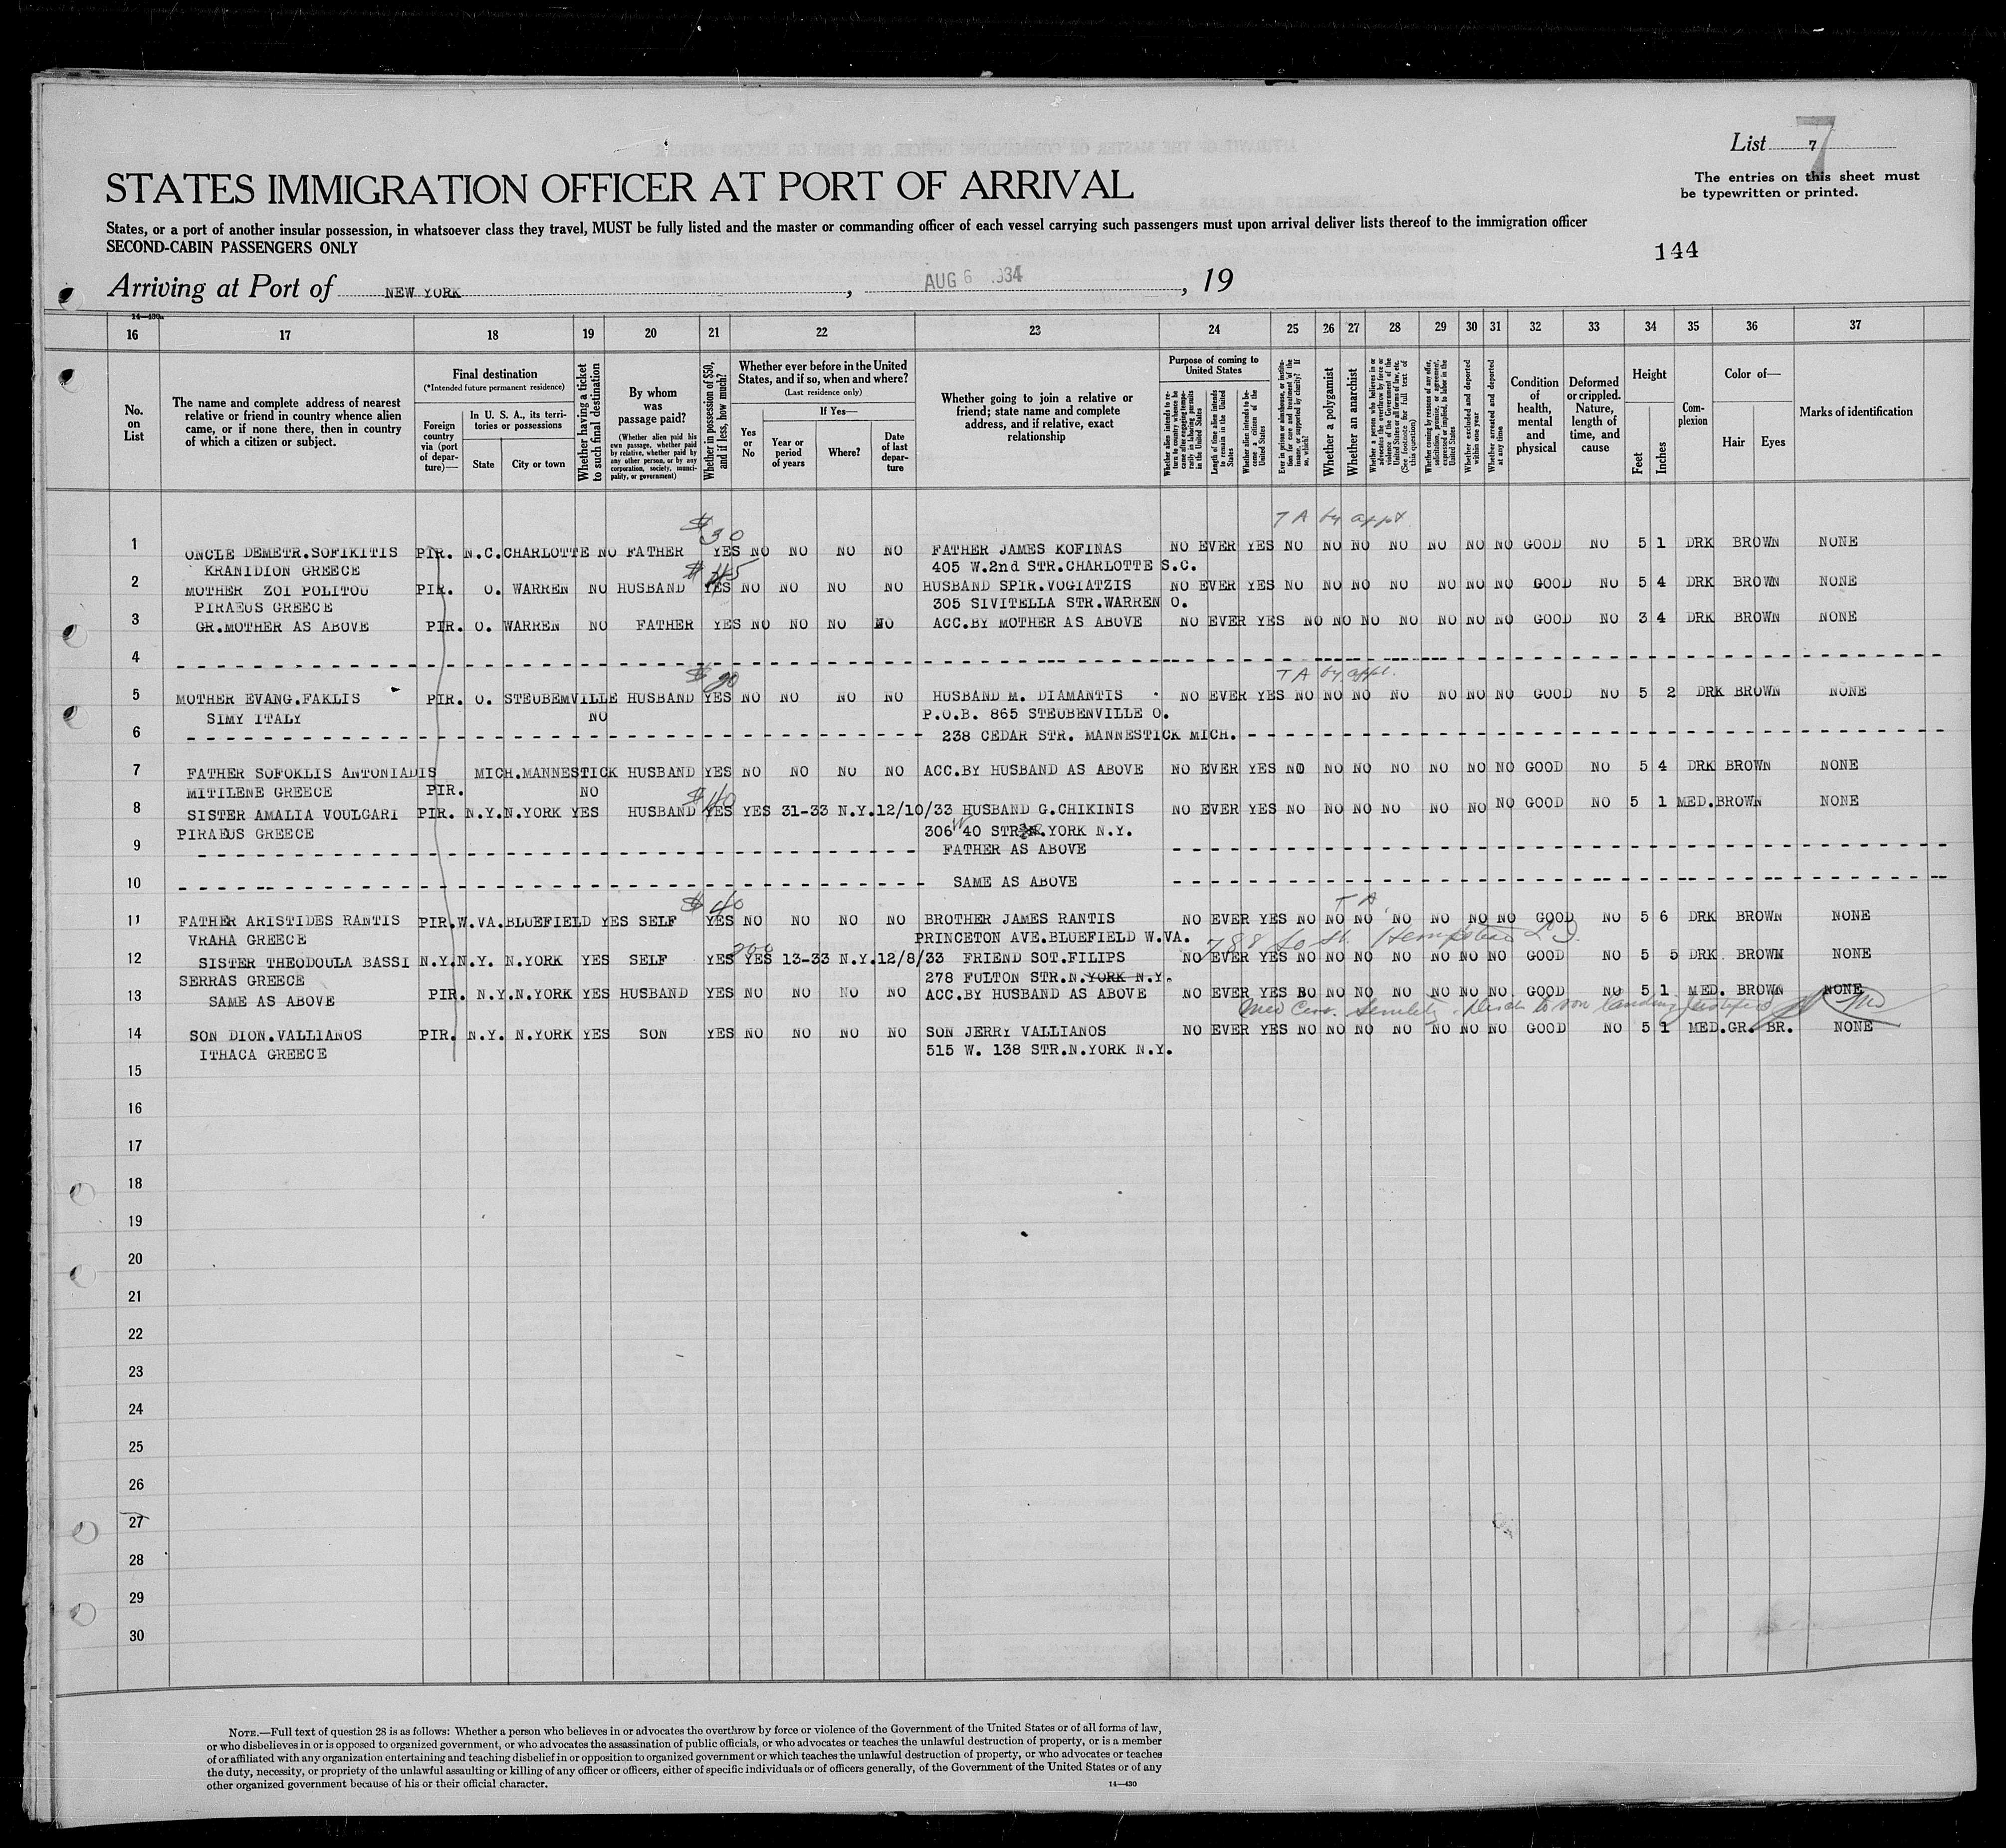 List 7
7
The entries on this sheet must
be typewritten or printed.
STATES IMMIGRATION OFFICER AT PORT OF ARRIVAL
States, or a port of another insular possession, in whatsoever class they travel, MUST be fully listed and the master or commanding officer of each vessel carrying such passengers must upon arrival deliver lists thereof to the immigration officer
SECOND-CABIN PASSENGERS ONLY
144
Arriving at Port of NEW YORK, AUG 6 1934, 19
14—430a
16 17 18 19 20 21 22 23 24 25 26 27 28 29 30 31 32 33 34 35 36 37
No. on List
The name and complete address of nearest relative or friend in country whence alien came, or if none there, then in country of which a citizen or subject.
Final destination
(*Intended future permanent residence)
Foreign country via (port of departure)—
In U. S. A., its territories or possessions
State
City or town
Whether having a ticket to such final destination
By whom was passage paid?
(Whether alien paid his own passage, whether paid by relative, whether paid by any other person, or by any corporation, society, municipality, or government)
Whether in possession of $50, and if less, how much?
Whether ever before in the United States, and if so, when and where?
(Last residence only)
Yes or No
If Yes—
Year or period of years
Where?
Date of last departure
Whether going to join a relative or friend; state name and complete address, and if relative, exact relationship
Purpose of coming to United States
Whether alien intends to return to country whence he came after engaging temporarily in laboring pursuits in the United States
Length of time alien intends to remain in the United States
Whether alien intends to become a citizen of the United States
Ever in prison or almshouse, or institution for care and treatment of the insane, or supported by charity? If so, which?
Whether a polygamist
Whether an anarchist
Whether a person who believes in or advocates the overthrow by force or violence of the Government of the United States or all forms of law, etc. (See footnote for full text of this question)
Whether coming by reason of any offer, solicitation, promise, or agreement, expressed or implied, to labor in the United States
Whether excluded and deported within one year
Whether arrested and deported at any time
Condition of health, mental and physical
Deformed or crippled. Nature, length of time, and cause
Height
Feet
Inches
Complexion
Color of—
Hair
Eyes
Marks of identification
$30 T A by appt
1 ONCLE DEMETR.SOFIKITIS PIR. N.C. CHARLOTTE NO FATHER YES NO NO NO NO FATHER JAMES KOFINAS NO EVER YES NO NO NO NO NO NO NO GOOD NO 5 1 DRK BROWN NONE
KRANIDION GREECE 405 W.2nd STR.CHARLOTTE S.C.
$45
2 MOTHER ZOI POLITOU PIR. O. WARREN NO HUSBAND YES NO NO NO NO HUSBAND SPIR.VOGIATZIS NO EVER YES NO NO NO NO NO NO NO GOOD NO 5 4 DRK BROWN NONE
PIRAEUS GREECE 305 SIVITELLA STR.WARREN O.
3 GR.MOTHER AS ABOVE PIR. O. WARREN NO FATHER YES NO NO NO NO ACC.BY MOTHER AS ABOVE NO EVER YES NO NO NO NO NO NO NO GOOD NO 3 4 DRK BROWN NONE
4
$20 T A by appt.
5 MOTHER EVANG.FAKLIS PIR. O. STEUBEMVILLE HUSBAND YES NO NO NO NO HUSBAND M. DIAMANTIS NO EVER YES NO NO NO NO NO NO NO GOOD NO 5 2 DRK BROWN NONE
SIMY ITALY NO P.O.B. 865 STEUBENVILLE O.
6 238 CEDAR STR. MANNESTICK MICH.
7 FATHER SOFOKLIS ANTONIADIS MICH.MANNESTICK HUSBAND YES NO NO NO NO ACC.BY HUSBAND AS ABOVE NO EVER YES NO NO NO NO NO NO NO GOOD NO 5 4 DRK BROWN NONE
MITILENE GREECE PIR. NO
$40
8 SISTER AMALIA VOULGARI PIR. N.Y. N.YORK YES HUSBAND YES YES 31-33 N.Y. 12/10/33 HUSBAND G.CHIKINIS NO EVER YES NO NO NO NO NO NO NO GOOD NO 5 1 MED. BROWN NONE
PIRAEUS GREECE 306 W 40 STR.N.YORK N.Y.
9 FATHER AS ABOVE
10 SAME AS ABOVE
$40 T A
11 FATHER ARISTIDES RANTIS PIR. W.VA. BLUEFIELD YES SELF YES NO NO NO NO BROTHER JAMES RANTIS NO EVER YES NO NO NO NO NO NO NO GOOD NO 5 6 DRK BROWN NONE
VRAHA GREECE PRINCETON AVE.BLUEFIELD W.VA.
200 788 So St. Hempstead L I.
12 SISTER THEODOULA BASSI N.Y. N.Y. N.YORK YES SELF YES YES 13-33 N.Y. 12/8/33 FRIEND SOT.FILIPS NO EVER YES NO NO NO NO NO NO NO GOOD NO 5 5 DRK BROWN NONE
SERRAS GREECE 278 FULTON STR.N.YORK N.Y.
13 SAME AS ABOVE PIR. N.Y. N.YORK YES HUSBAND YES NO NO NO NO ACC.BY HUSBAND AS ABOVE NO EVER YES NO NO NO NO NO NO NO GOOD NO 5 1 MED. BROWN NONE
Med Cert. Senility. to son landing
14 SON DION.VALLIANOS PIR. N.Y. N.YORK YES SON YES NO NO NO NO SON JERRY VALLIANOS NO EVER YES NO NO NO NO NO NO NO GOOD NO 5 1 MED. GR. BR. NONE
ITHACA GREECE 515 W. 138 STR.N.YORK N.Y.
15
16
17
18
19
20
21
22
23
24
25
26
27
28
29
30
NOTE.—Full text of question 28 is as follows: Whether a person who believes in or advocates the overthrow by force or violence of the Government of the United States or of all forms of law,
or who disbelieves in or is opposed to organized government, or who advocates the assassination of public officials, or who advocates or teaches the unlawful destruction of property, or is a member
of or affiliated with any organization entertaining and teaching disbelief in or opposition to organized government or which teaches the unlawful destruction of property, or who advocates or teaches
the duty, necessity, or propriety of the unlawful assaulting or killing of any officer or officers, either of specific individuals or of officers generally, of the Government of the United States or of any
other organized government because of his or their official character.
14—430